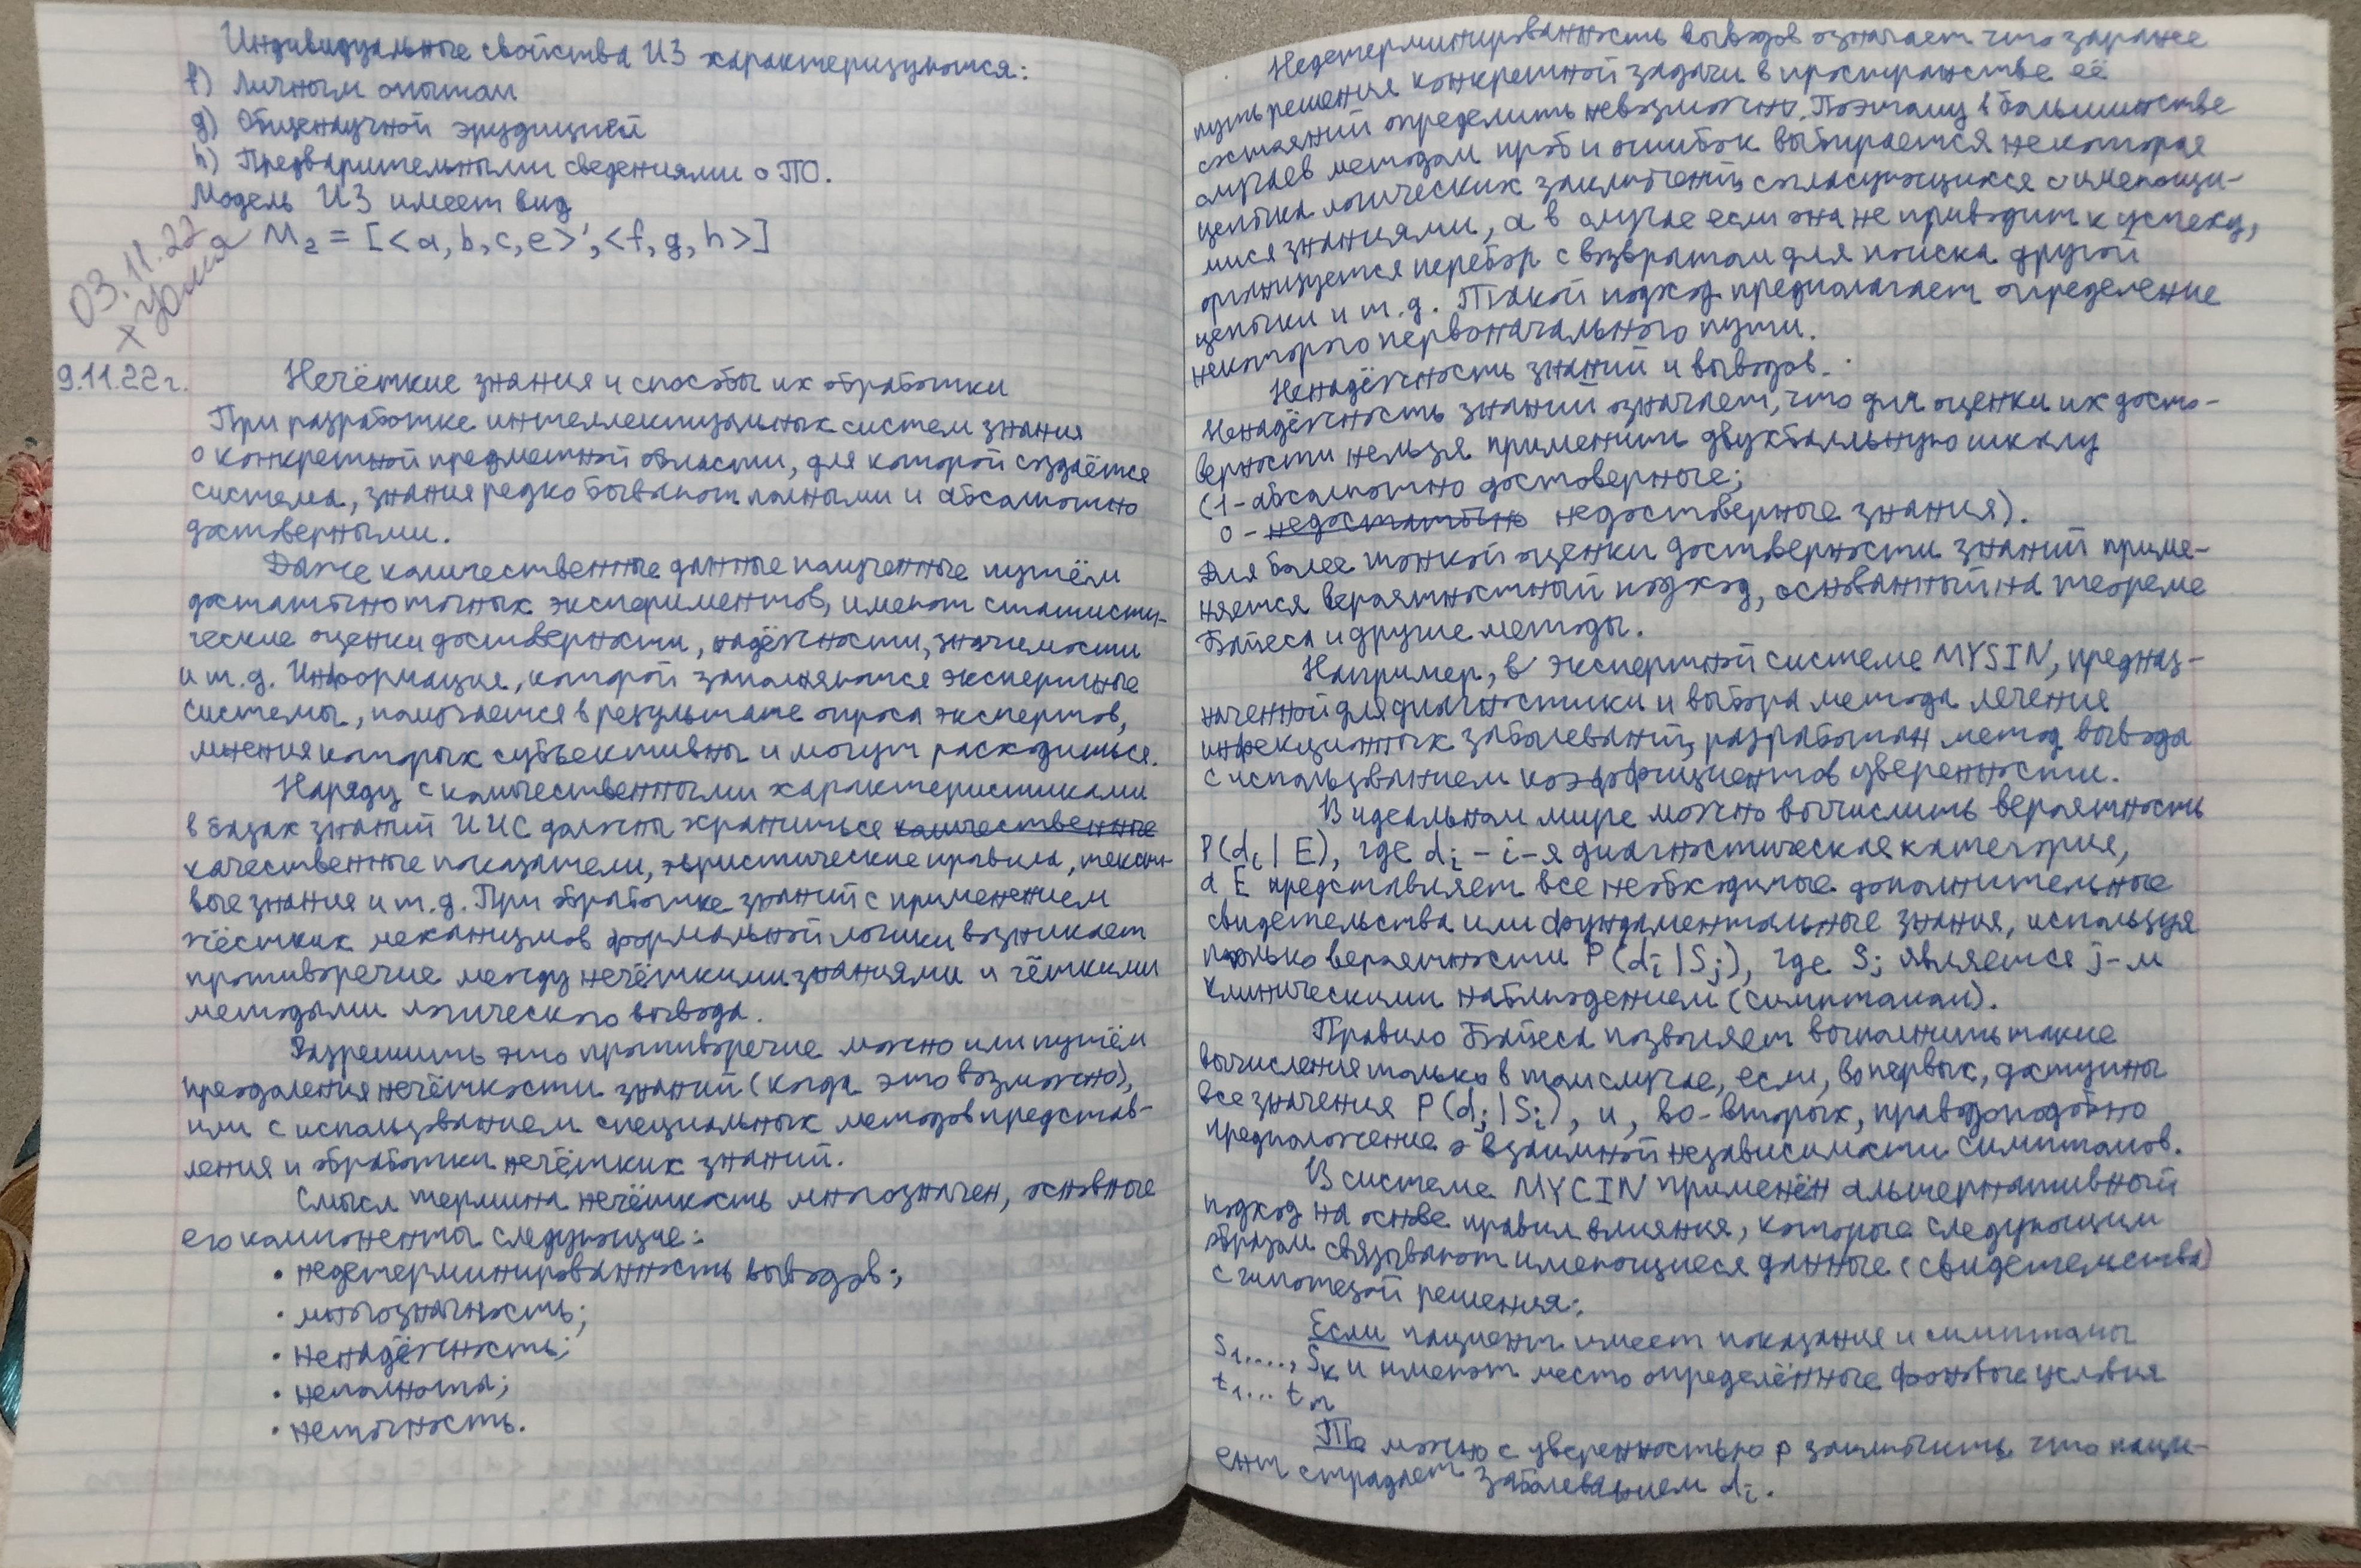 Индивидуальные свойства ИЗ характеризуются:
f) Личным опытом
g) Общенаучной эрудицией
h) Предварительными сведениями о ПО.
Модель ИЗ имеет вид
M₂ = [<a, b, c, e>', <f, g, h>]
03.11.22
9.11.22г.
Нечёткие знания и способы их обработки
При разработке интеллектуальных систем знания
о конкретной предметной области, для которой создаётся
система, знания редко бывают полными и абсолютно
достоверными.
Даже количественные данные полученные путём
достаточно точных экспериментов, имеют статисти-
ческие оценки достоверности, надёжности, значимости
и т.д. Информация, которой заполняются экспертные
системы, получается в результате опроса экспертов,
мнения которых субъективны и могут расходиться.
Наряду с количественными характеристиками
в базах знаний ИИС должны храниться количественные
качественные показатели, эвристические правила, тексто-
вые знания и т.д. При обработке знаний с применением
жёстких механизмов формальной логики возникает
противоречие между нечёткими знаниями и чёткими
методами логического вывода.
Разрешить это противоречие можно или путём
преодоления нечёткости знаний (когда это возможно),
или с использованием специальных методов представ-
ления и обработки нечётких знаний.
Смысл термина нечёткость многозначен, основные
его компоненты следующие:
• недетерминированность выводов;
• многозначность;
• ненадёжность;
• неполнота;
• неточность.
Недетерминированность выводов означает что заранее
путь решения конкретной задачи в пространстве её
состояний определить невозможно. Поэтому в большинстве
случаев методом проб и ошибок выбирается некоторая
цепочка логических заключений, согласующихся с имеющи-
мися знаниями, а в случае если она не приводит к успеху,
организуется перебор с возвратом для поиска другой
цепочки и т.д. Такой подход предполагает определение
некоторого первоначального пути.
Ненадёжность знаний и выводов.
Ненадёжность знаний означает, что для оценки их досто-
верности нельзя применить двухбалльную шкалу
(1 - абсолютно достоверные;
0 - недостаточно недостоверные знания).
Для более тонкой оценки достоверности знаний приме-
няется вероятностный подход, основанный на теореме
Байеса и другие методы.
Например, в экспертной системе MYSIN, предназ-
наченной для диагностики и выбора метода лечения
инфекционных заболеваний, разработан метод вывода
с использованием коэффициентов уверенности.
В идеальном мире можно вычислить вероятность
P(dᵢ | E), где dᵢ - i-я диагностическая категория,
а E представляет все необходимые дополнительные
свидетельства или фундаментальные знания, используя
только вероятности P(dᵢ | Sⱼ), где Sⱼ является j-м
клиническими наблюдением (симптомом).
Правило Байеса позволяет выполнить такие
вычисления только в том случае, если, во первых, доступны
все значения P(dⱼ | Sᵢ), и, во-вторых, правдоподобно
предположение о взаимной независимости симптомов.
В системе MYCIN применён альтернативный
подход на основе правил влияния, которые следующим
образом связывают имеющиеся данные (свидетельства)
с гипотезой решения:
Если пациент имеет показания и симптомы
S₁...., Sₖ и имеют место определённые фоновые условия
t₁... tₙ
То можно с уверенностью p заключить, что паци-
ент страдает заболеванием dᵢ.